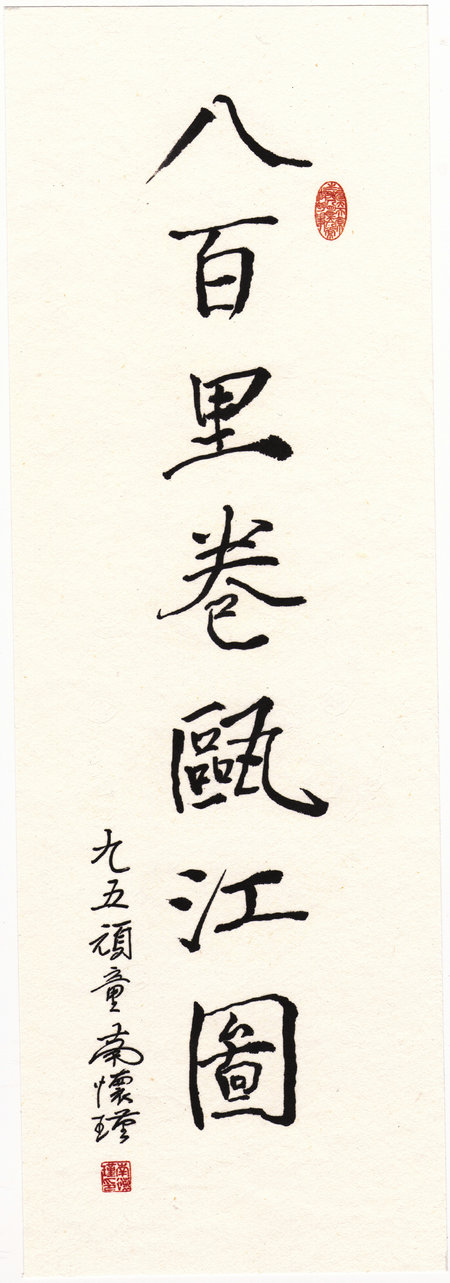 八百里卷甌江圖
九五頑童南懷瑾